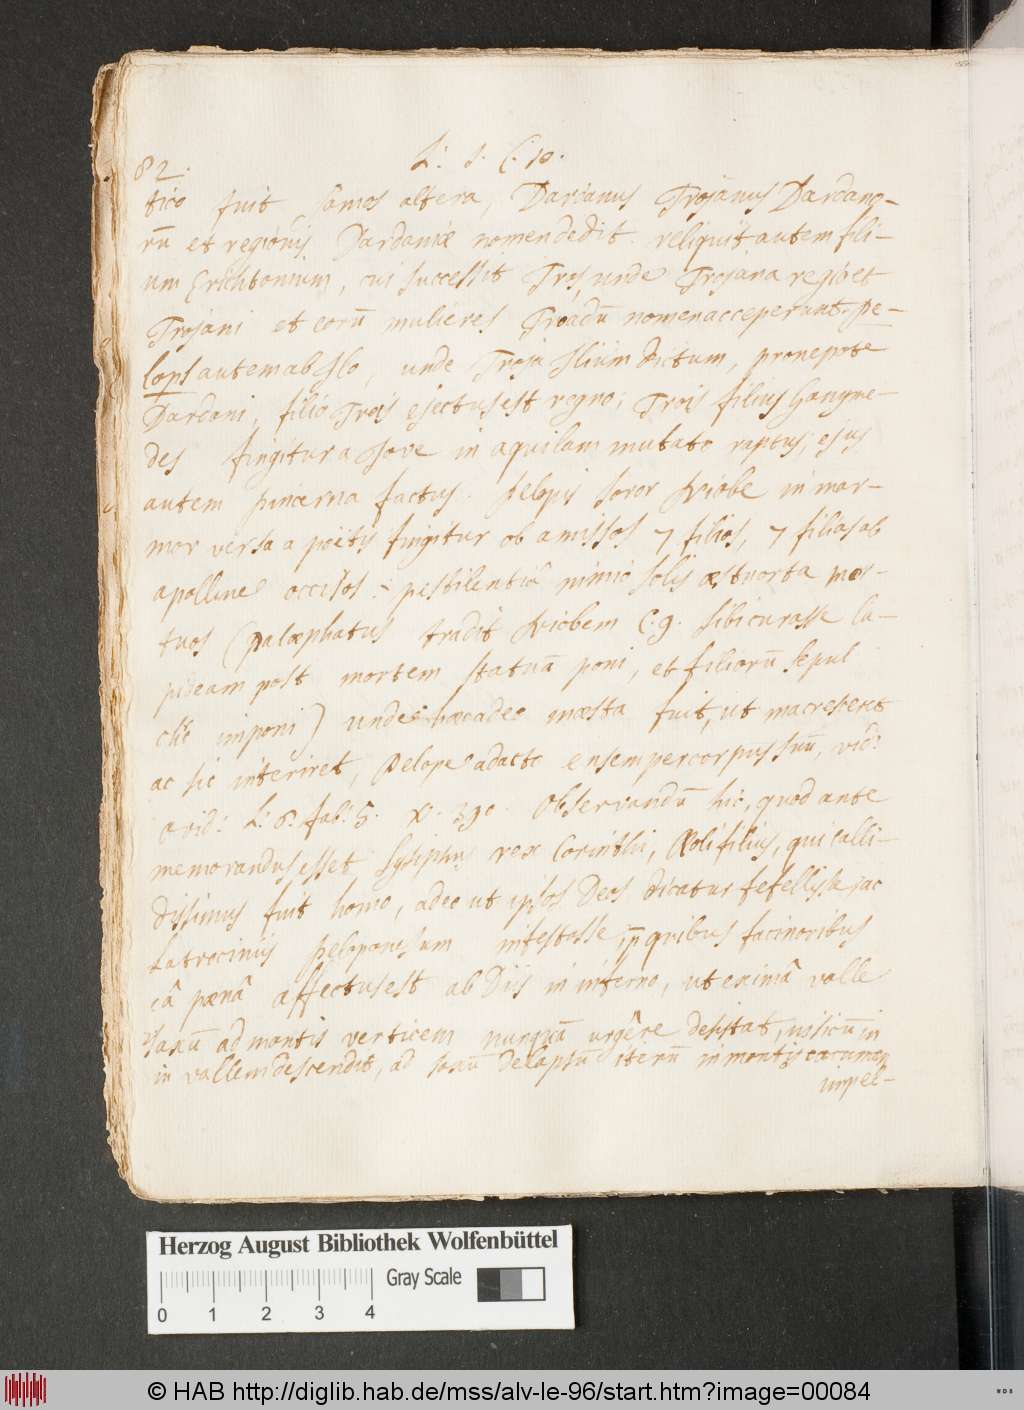 82.
L: 1. C: 10.
tico fuit Samos altera, Dardanus Trojanus Dardano-
rū et regionis Dardaniæ nomen dedit. reliquit autem fili-
um Erichtonium, cui successit Tros unde Trojana regio et
Trojani et eorū mulieres Troadū nomen acceperunt. Pe-
lops autem ab Ilo, unde Troja Ilium dictum, pronepote
Dardani, filio Trois ejectus est regno; Trois filius Ganyme-
des fingitur a Jove in aquilam mutato raptus, ejus
autem pincerna factus. Pelopis soror Niobe in mar-
mor versa a poëtis fingitur ob amissos 7 filios, 7 filias ab
apolline occisos pestilentiâ nimio solis æstu orta mor-
tuos (palæphatus tradit Niobem C. 9. sibi curasse la-
pideam post mortem statuā poni, et filiorū sepul
chro imponi) unde hæc adeo mæsta fuit, ut macresceret
ac sic interiret, Pelope adacto ensem per corpus suū, vid:
ovid: L: 6. fab: 5. v. 390. Observandū hic, quod ante
memorandus esset Sysiphus rex Corinthi, Æoli filius, qui calli-
dissimus fuit homo, adeo ut ipsos Deos dicatur fefellisse, ac
Latrociniis Peloponesum infestasse, quibus facinoribus
eâ pænâ affectus est ab Diis in inferno, ut ex imâ valle
saxū ad montis verticem nunquā urgêre desistat, nisi cū in
in vallem descendit, ad saxū delapsū iterū in montis cacumen
impel-
Herzog August Bibliothek Wolfenbüttel
Gray Scale
0 1 2 3 4
© HAB http://diglib.hab.de/mss/alv-le-96/start.htm?image=00084